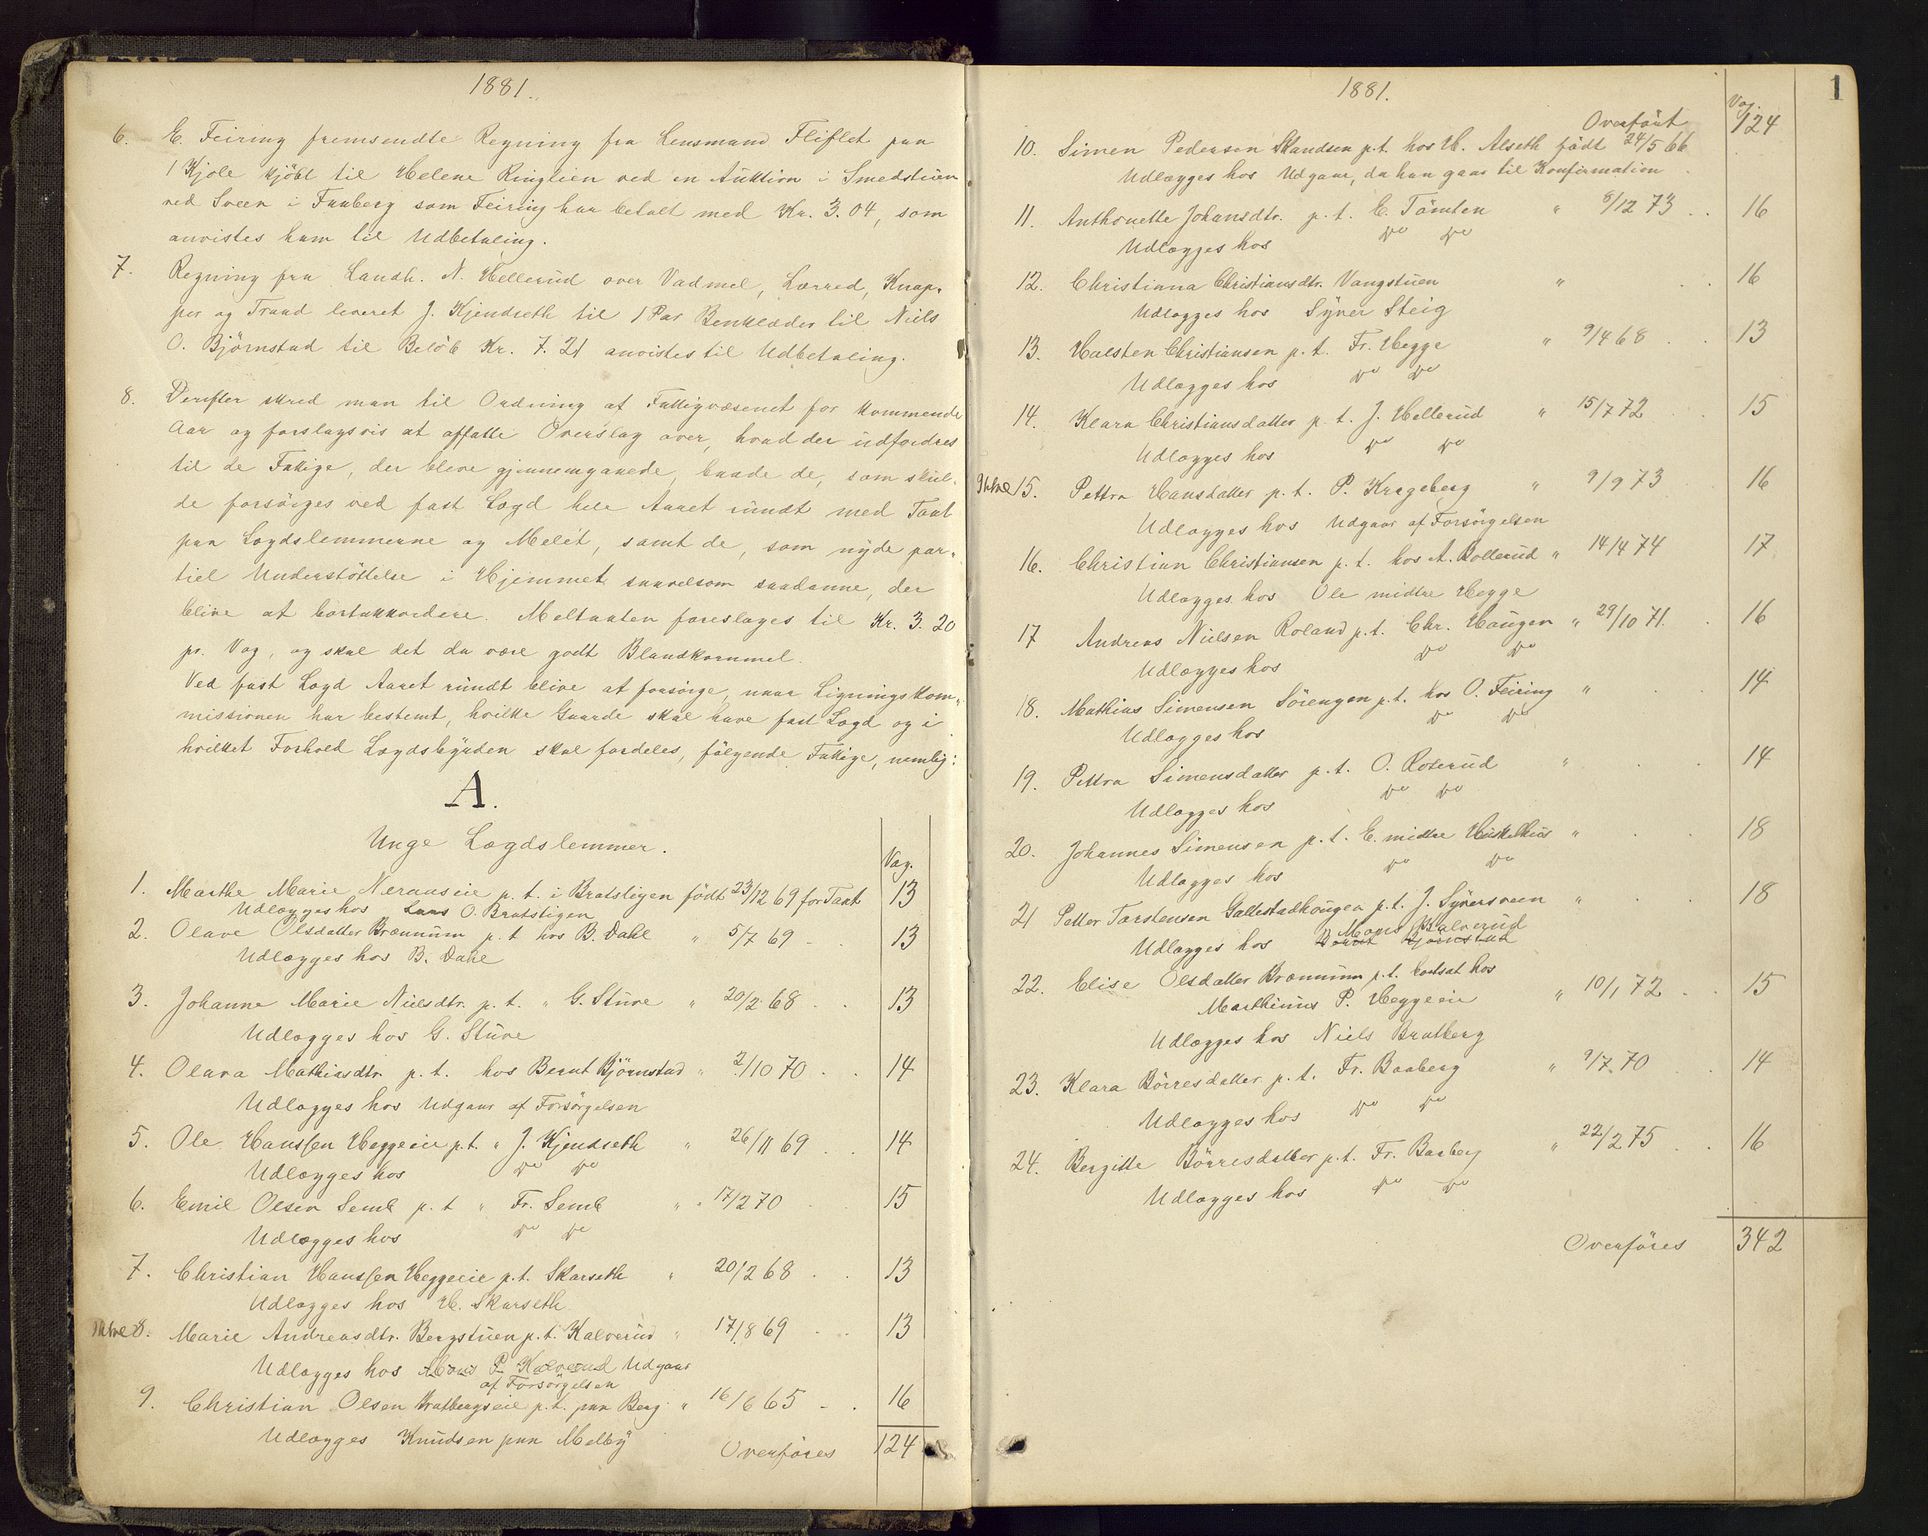 1881.
6. E. Feiring fremsendte Regning fra Lensmand Fliflet paa
1 Kjole kjöbt til Helene Ringlien ved en Auktion i Smedstuen
ved Sveen i Faaberg som Feiring har betalt med Kr. 3.04, som
anvistes ham til Udbetaling.
7. Regning fra Landh. N. Hellerud over Vadmel, Lærred, Knap-
per og Traad leveret J. Kjendseth til 1 Par Benklæder til Niels
O. Björnstad til Belöb Kr. 7.21 anvistes til Udbetaling.
8. Derefter skred man til Ordning af Fattigvæsenet for kommende
Aar og forslagsvis at affatte Overslag over, hvad der udfordres
til de Fattige, der bleve gjennemgaaede, baade de, som skul-
de forsörges ved fast Lægd hele Aaret rundt med Taxt
paa Lægdslemmerne og Melet, samt de, som nyde par-
tiel Understöttelse i Hjemmet saavelsom saadanne, der
blive at bortakkordere. Meltaxten foreslages til Kr. 3.20
pr. Vog, og skal det da være godt Blandkornmel.
Ved fast Lægd Aaret rundt blive at forsörge, naar Ligningskom-
missionen har bestemt, hvilke Gaarde skal have fast Lægd og i
hvilket Forhold Lægdsbyrden skal fordeles, fölgende Fattige, nemlig:
A.
Unge Lægdslemmer.
Vog.
1. Marthe Marie Neraaseie p.t. i Bratstigen födt 23/12 69 for Taxt 13
Udlægges hos Lars O. Bratstigen
2. Olave Olsdatter Brænnum p.t hos B. Dahl " 5/7 69 - . 13
Udlægges hos B. Dahl
3. Johanne Marie Nielsdtr. p.t. " G. Stuve " 20/2 68 . . 13
Udlægges hos G. Stuve
4. Olava Mathiasdtr. p.t. hos Bernt Björnstad " 2/10 70 . . 14
Udlægges hos Udgaar af Forsörgelsen
5. Ole Hanssen Heggeeie p.t. " J. Kjendseth " 26/11 69 . . 14
Udlægges hos do do
6. Emil Olsen Semb p.t " Fr. Semb " 17/2 70 . 15
Udlægges hos do do
7. Christian Hanssen Heggeeie p.t. Skarseth " 20/2 68 . . 13
Udlægges hos H. Skarseth
8. Marie Andreasdtr. Bergstuen p.t. Kalverud " 17/8 69 . . 13
Udlægges hos Mons P. Kalverud Udgaar
af Forsörgelsen
9. Christian Olsen Bratbergseie p.t. paa Berg " 16/6 65 - . 16
Udlægges Knudsen paa Melby Overföres 124
1
1881.
Vog.
Overfört 124
10. Simen Pedersen Skandsen p.t. hos H. Alseth födt 24/5 66
Udlægges hos Udgaar, da han gaar til Konfirmation
11. Anthonette Johansdtr. p.t. E. Tömten " 8/12 73 . . 16
Udlægges hos do do
12. Christianna Christiansdtr. Vangstuen " . . 16
Udlægges hos Syver Steig
13. Halsten Christiansen p.t. Fr. Hegge " 9/4 68 . . 13
Udlægges hos do do
14. Klara Christiansdatter p.t. J. Hellerud " 15/7 72 . . 15
Udlægges hos do do
15. Pettra Hansdatter p.t. P. Krageberg " 9/9 73 . 16
Udlægges hos Udgaar af Forsörgelsen
16. Christian Christiansen p.t. hos A. Rollerud " 14/4 74 17
Udlægges hos Ole midtre Hegge
17 Andreas Nielsen Roland p.t. Chr. Haugen " 29/10 71. . 16
Udlægges hos do do
18. Mathias Simensen Sörengen p.t. hos O. Feiring " . . 14
Udlægges hos do do
19. Pettra Simensdatter p.t. O. Roterud " . . 14
Udlægges hos do do
20. Johannes Simensen p.t. E. midtre Huskelhus " . . 18
Udlægges hos do do
21 Petter Torstensen Gallestadhougen p.t. J. Syversveen " . . 18
Mons Kalverud
Udlægges hos Björnstad
22. Elise Olsdatter Brænnum p.t. bortsat hos
Marthinus P. Heggeeie " 10/1 72 . . 15
Udlægges hos Niels Bratberg
23. Klara Börresdatter p.t. Fr. Baaberg " 9/7 70 . . 14
Udlægges hos do do
24. Bergitte Börresdatter p.t. Fr. Baaberg " 22/2 75 . . 16
Udlægges hos do do
Overföres 342